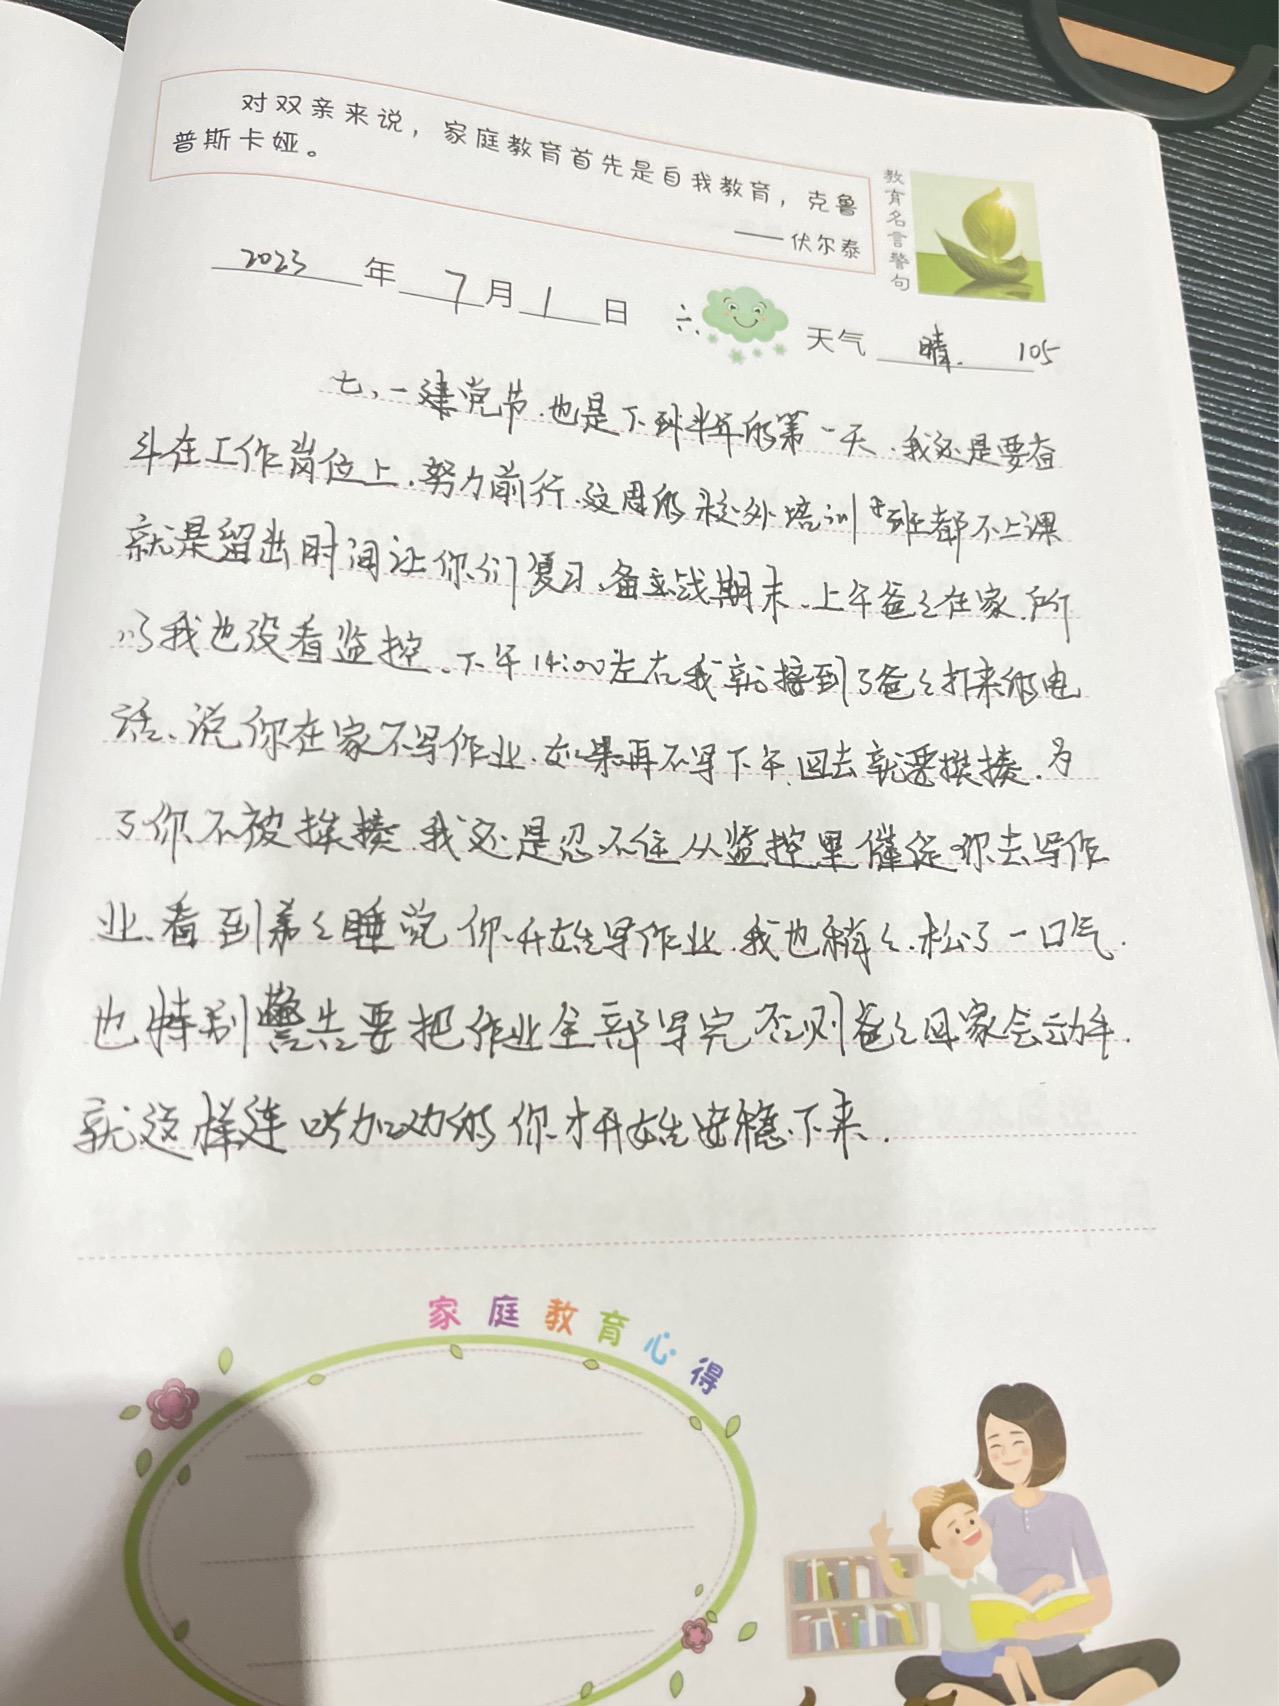 对双亲来说，家庭教育首先是自我教育，克鲁
普斯卡娅。
——伏尔泰
教育名言警句
2023年7月1日 六、 天气 晴. 105
七、一建党节.也是下到半年的第一天.我还是要奋
斗在工作岗位上.努力前行.这周的校外培训班都不上课
就是留出时间让你们复习、备战期末.上午爸々在家.所
以我也没看监控.下午14:00左右我就接到了爸々打来的电
话、说你在家不写作业.如果再不写下午回去就要挨揍.为
了你不被挨揍.我还是忍不住从监控里催促你去写作
业、看到弟々睡觉你开始写作业.我也稍々.松了一口气.
也特别警告要把作业全部写完否则爸々回家会动手.
就这样连哄加劝的你才开始安稳下来.
家庭教育心得